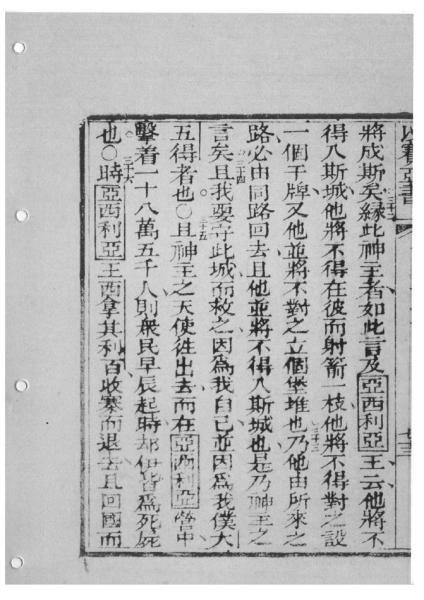 以賽亞書
將成斯矣緣此神王者如此言及亞西利亞王云他將不
三十三
得入斯城他將不得在彼而射箭一枝他將不得對之設
一個干牌又他並將不對之立個堡堆也乃他由所來之
三十四
路必由同路回去且他並將不得入斯城也是乃神王之
三十五
言矣且我要守此城而救之因為我自己並因為我僕大
五得者也〇且神王之天使徃出去而在亞西利亞營中
三十六
擊着一十八萬五千人則衆民早辰起時却伊皆為死屍
也〇時亞西利亞王西拿其利百收寨而退去且回國而